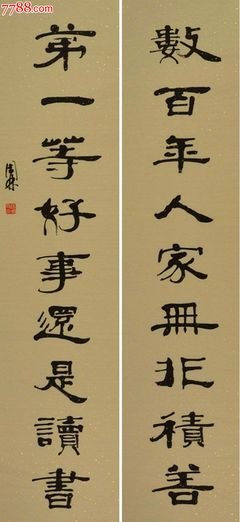 7788.com
數百年人家無非積善
第一等好事還是讀書